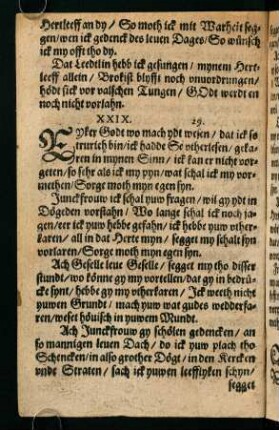 Hertleeff an dy / So moth ick mit Warheit seg-
gen / wen ick gedenck des leuen Dages / So wünsch
ick my offt tho dy.
Dat Leedtlin hebb ick gesungen / mynem Hert-
leeff allein / Brokist blyfft noch vnuordrungen /
hödt sick vor valschen Tungen / GOdt werdt en
noch nicht vorlahn.
XXIX. 29.
Eyker Godt wo mach ydt wesen / dat ick so
trurich bin / ick hadde So vtherlesen / geka-
ren in mynen Sinn / ick kan er nicht vor-
geten / so sehr als ick my pyn / wat schal ick my vor-
methen / Sorge moth myn egen syn.
Junckfrouw ick schal yuw fragen / wil gy ydt in
Dögeden vorstahn / Wo lange schal ick noch ja-
gen / eer ick yuw hebbe gefahn / ick hebbe yuw vther-
karen / all in dat Herte myn / segget my schalt syn
vorlaren / Sorge moth myn egen syn.
Ach Geselle leue Geselle / segget my tho disser
stundt / wo könne gy my vortellen / dat gy in bedrü-
cke synt / hebbe gy my vtherkaren / Ick weeth nicht
yuwen Grundt / mach yuw wat gudes wedderfa-
ren / weset höuisch in yuwem Mundt.
Ach Junckfrouw gy schölen gedencken / an
so mannigen leuen Dach / do ick yuw plach tho
Schencken / in also grother Dögt / in den Kercken
vnde Straten / sach ick yuwen leefflyken schyn /
segget